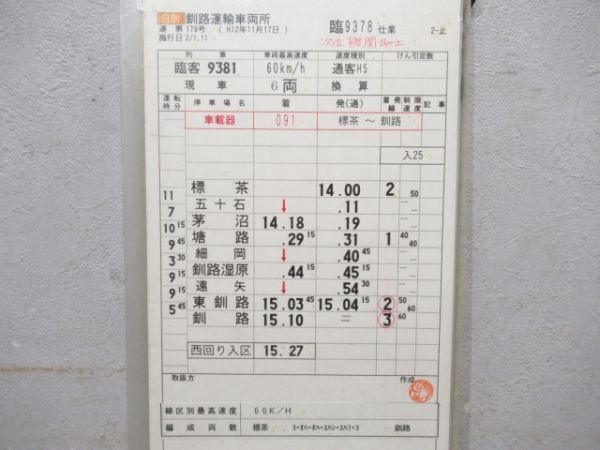 日刷 釧路運輸車両所 臨9378仕業 2-止
達 第 179号 ( H12年11月17日 )
施行日 2/1,11 次位機関助士
列車 車両最高速度 速度種別 けん引定数
臨客 9381 60km/h 通客H5
現車 6両 換算
運転時分 停車場名 着 発(通) 着発線 制限速度 記事
車載器 091 標茶 ～ 釧路
入25
標茶 14.00 2 50
11 五十石 ↓ .11
7 茅沼 14.18 .19
10 15 塘路 .29 15 .31 1 40 40
9 45 細岡 ↓ .40 45
3 30 釧路湿原 .44 15 .45 15
9 15 遠矢 ↓ .54 30
9 15 東釧路 15.03 45 15.04 15 2 50 60
5 45 釧路 15.10 = 3 60
西回り入区 15.27
取扱方 作成
線区別最高速度 60K/H
編成両数 標茶 釧路